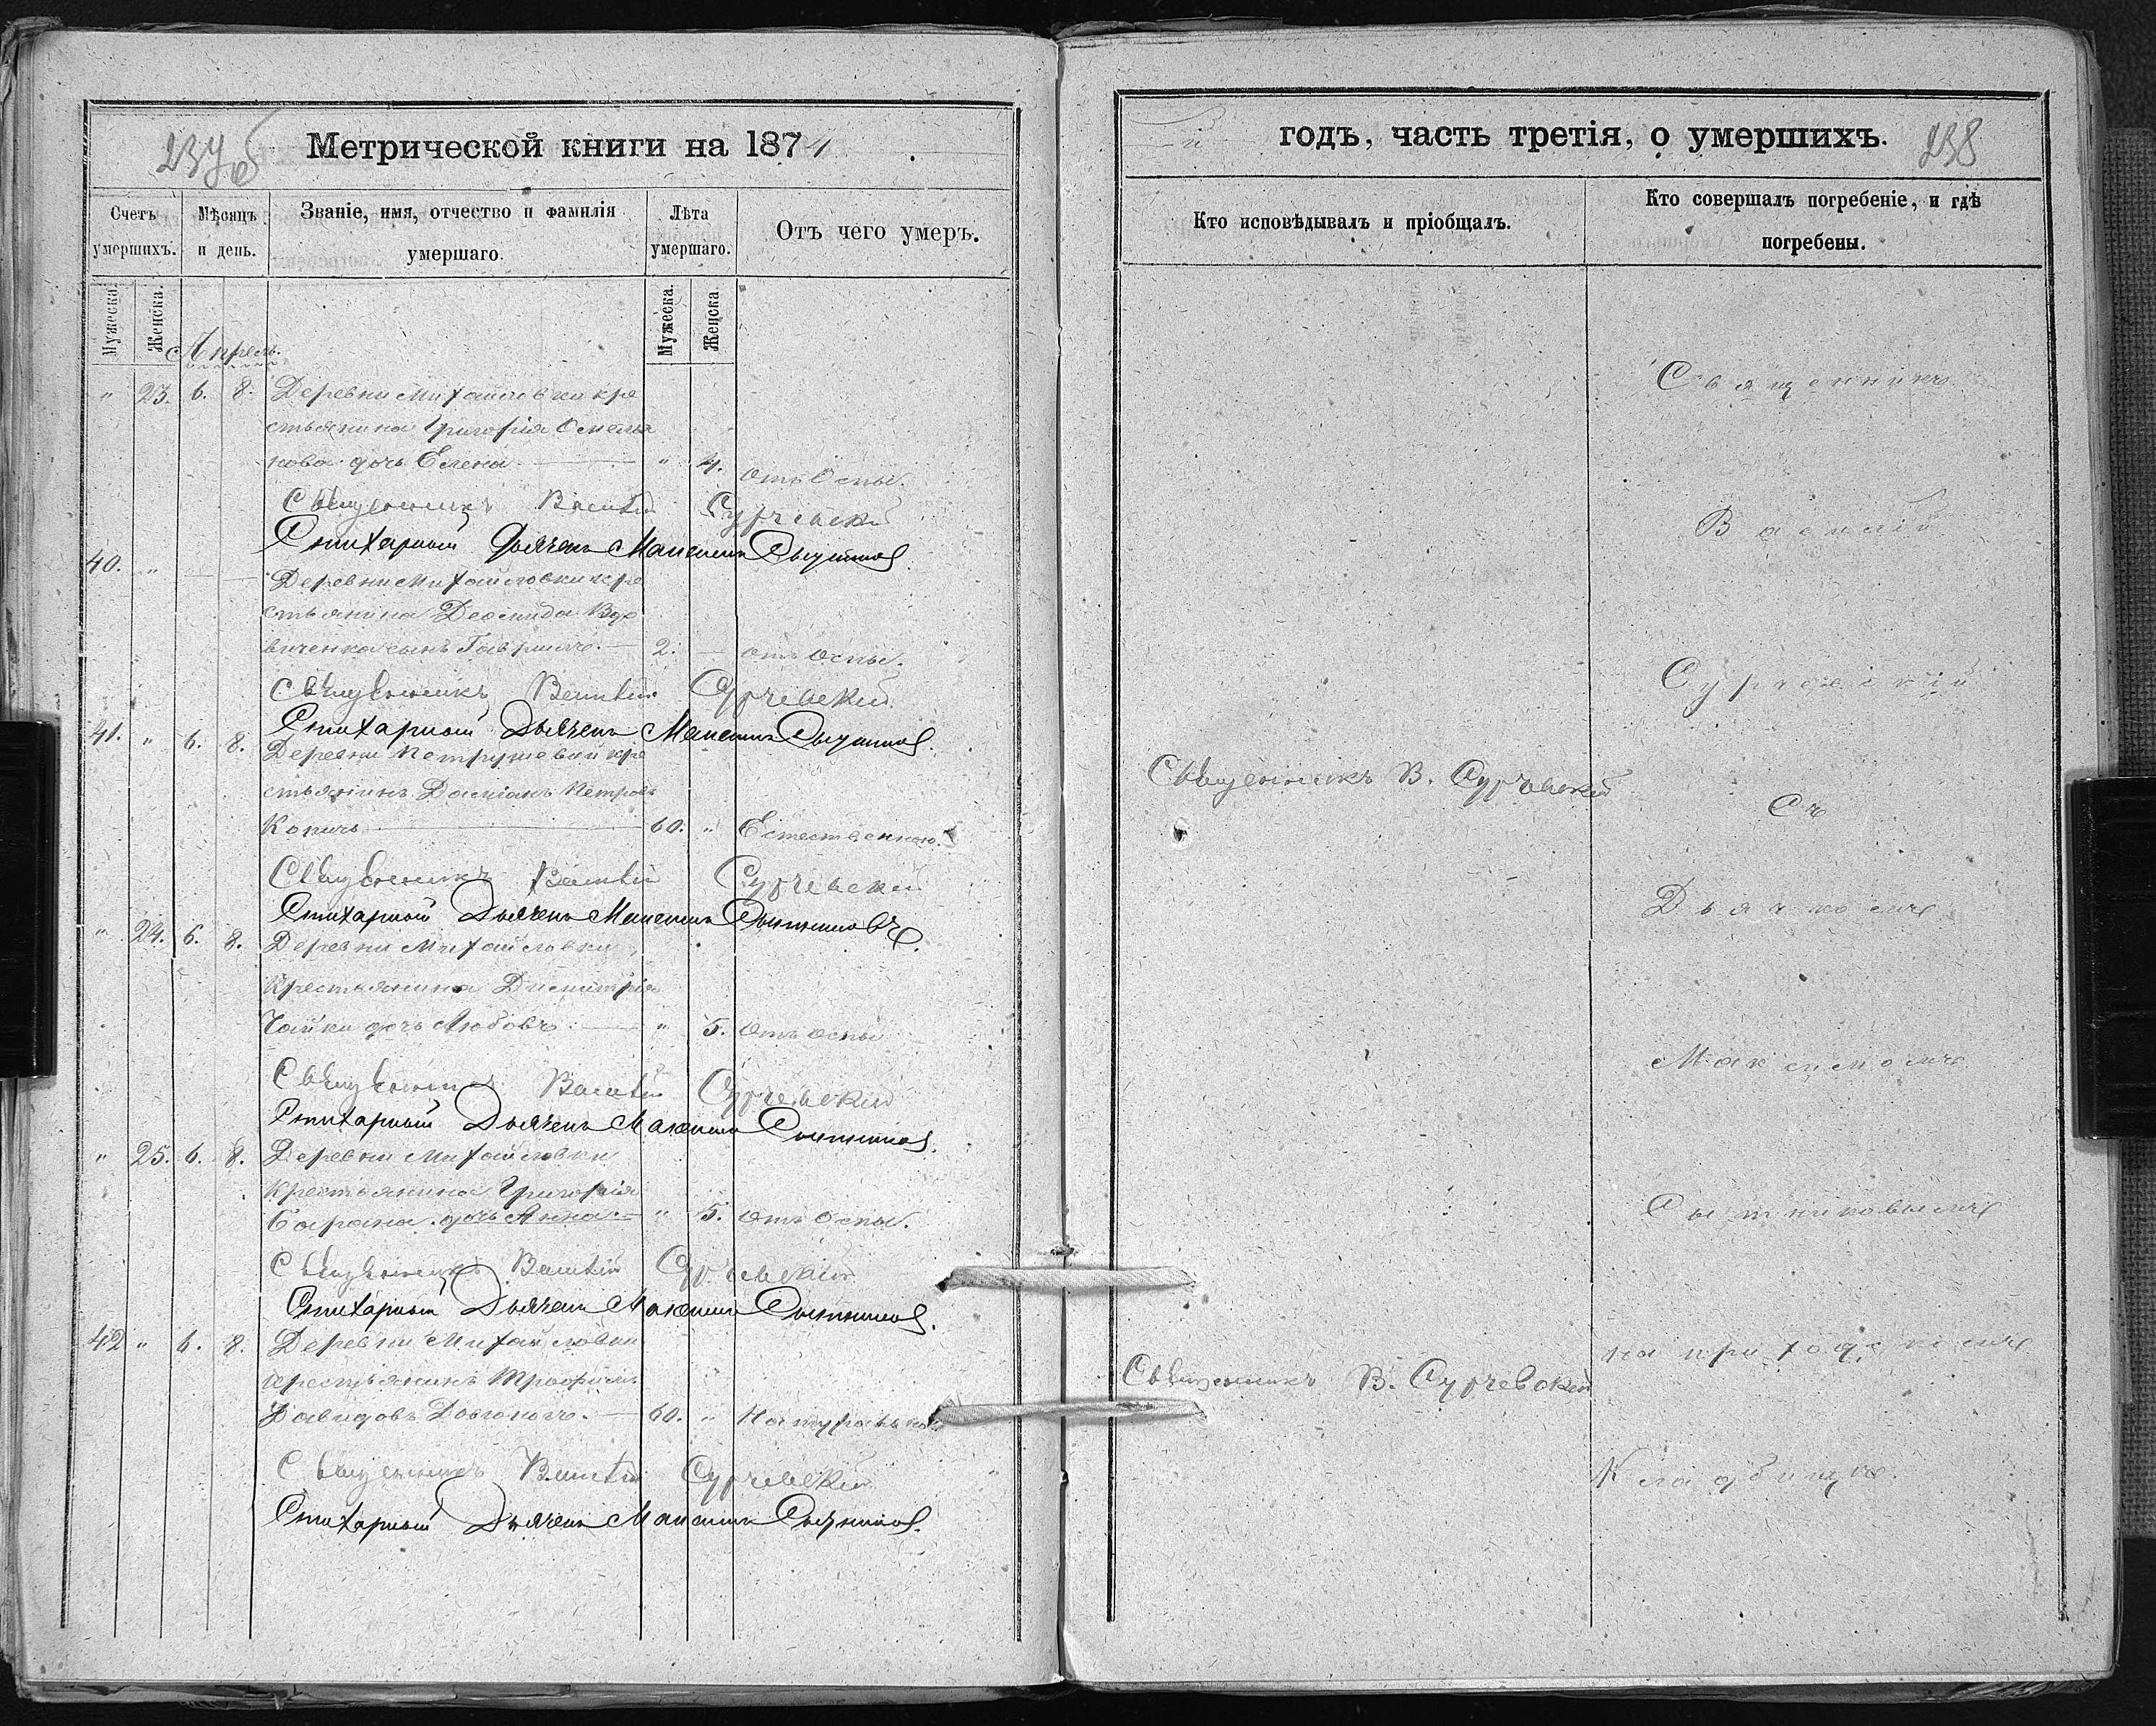 237об
Метрической книги на 1871
Счетъ умершихъ.
Мѣсяцъ и день.
Званіе, имя, отчество и фамилія умершаго.
Лѣта умершаго.
Отъ чего умеръ.
Мужеска.
Женска.
Мужеска.
Женска.
Апрель.
" 23. 6. 8. Деревни Михайловки кре
стьянина Григорія Омелья
нова дочь Елена " 4. отъ Оспы.
Священникъ Василій Сурчевскій
Стихарный Дьячекъ Максимъ Сытников.
40. " Деревни Михайловки кре
стьянина Деомида Вдо
виченка сынъ Гавріилъ. 2. отъ оспы.
Священникъ Василій Сурчевскій
Стихарный Дьячекъ Максимъ Сытников.
41. " 6. 8. Деревни Петрушевки кре
стьянинъ Даміанъ Петровъ
Копичъ 60. " Естественною.
Священникъ Василій Сурчевскій
Стихарный Дьячекъ Максимъ Сытниковъ.
" 24. 6. 8. Деревни Михайловки
крестьянина Димитрія
Чайки дочь Любовь " 5. отъ оспы
Священникъ Василій Сурчевскій
Стихарный Дьячекъ Максимъ Сытников.
" 25. 6. 8. Деревни Михайловки
крестьянина Григорія
Барана дочь Анна " 5. отъ Оспы.
Священникъ Василій Сурчевскій
Стихарный Дьячекъ Максимъ Сытников.
42 " 6. 8. Деревни Михайловки
крестьянинъ Трофимъ
Давидовъ 60. "
Священникъ Василій Сурчевскій
Стихарный Дьячекъ Максимъ Сытников.
годъ, часть третія, о умершихъ.
238
Кто исповѣдывалъ и пріобщалъ.
Кто совершалъ погребеніе, и гдѣ погребены.
Священникъ
Василій
Сурчевскій
Священникъ В. Сурчевскій
Съ
Дьячкомъ
Максимомъ
Сытниковымъ
на приходскомъ
Священникъ В. Сурчевскій
Кладбищѣ.